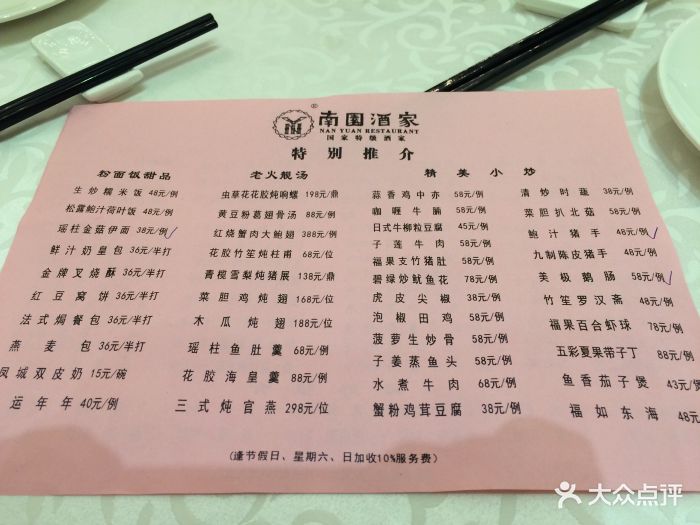 ®
南園酒家
NAN YUAN RESTAURANT
国家特级酒家
特别推介
粉面饭甜品
生炒糯米饭 48元/例
松露鲍汁荷叶饭 48元/例
瑶柱金菇伊面 38元/例
鲜汁奶皇包 36元/半打
金牌叉烧酥 36元/半打
红豆窝饼 36元/半打
法式焗餐包 36元/半打
燕麦包 36元/半打
凤城双皮奶 15元/碗
运年年 40元/例
老火靓汤
虫草花花胶炖响螺 198元/鼎
黄豆粉葛翅骨汤 88元/例
红烧蟹肉大鲍翅 388元/例
花胶竹笙炖柱甫 68元/位
青榄雪梨炖猪展 138元/鼎
菜胆鸡炖翅 168元/位
木瓜炖翅 188元/位
瑶柱鱼肚羹 68元/例
花胶海皇羹 88元/例
三式炖官燕 298元/位
精美小炒
蒜香鸡中亦 58元/例
咖喱牛腩 58元/例
日式牛柳粒豆腐 45元/例
子莲牛肉 58元/例
福果支竹猪肚 58元/例
碧绿炒鱿鱼花 78元/例
虎皮尖椒 38元/例
泡椒田鸡 58元/例
菠萝生炒骨 58元/例
子姜蒸鱼头 58元/例
水煮牛肉 68元/例
蟹粉鸡茸豆腐 38元/例
清炒时蔬 38元/例
菜胆扒北菇 58元/例
鲍汁猪手 48元/例
九制陈皮猪手 48元/例
美极鹅肠 58元/例
竹笙罗汉斋 48元/例
福果百合虾球 78元/例
五彩夏果带子丁 88元/例
鱼香茄子煲 43元/煲
福如东海 48元
(逢节假日、星期六、日加收10%服务费)
大众点评